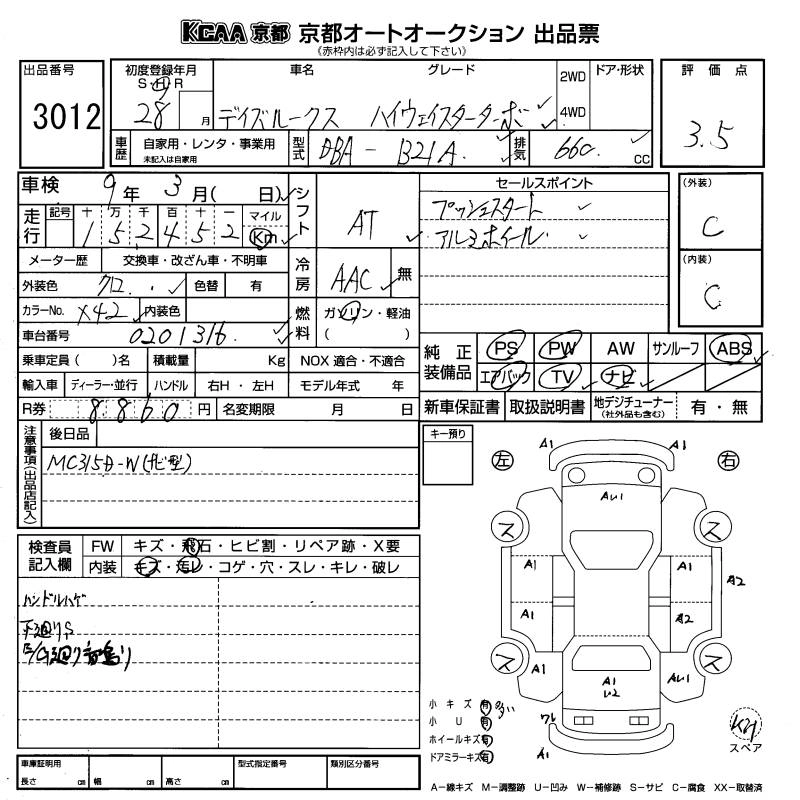 KCAA 京都 京都オートオークション 出品票
(赤枠内は必ず記入して下さい)
出品番号
3012
初度登録年月
S・H・R
28 月
車名 グレード
デイズルークス ハイウェイスターターボ
2WD
4WD
ドア・形状
評価点
3.5
車歴
自家用・レンタ・事業用
未記入は自家用
型式
DBA - B21A
排気
660 CC
車検 9年 3月( 日)
走行
記号 十 万 千 百 十 一 マイル
1 5 2 4 5 2 Km
メーター歴 交換車・改ざん車・不明車
外装色 クロ 色替 有
カラーNo. X42 内装色
車台番号 0201316
乗車定員 ( )名 積載量 Kg NOX 適合・不適合
輸入車 ディーラー・並行 ハンドル 右H・左H モデル年式 年
R券 8860 円 名変期限 月 日
シフト
AT
冷房
AAC 無
燃料
ガソリン・軽油
( )
セールスポイント
プッシュスタート
アルミホイール
(外装)
C
(内装)
C
純正装備品
PS PW AW サンルーフ ABS
エアバック TV ナビ
新車保証書 取扱説明書 地デジチューナー (社外品も含む) 有・無
注意事項(出品店記入)
後日品
MC315D-W(ナビ型)
キー預り
検査員記入欄
FW キズ・飛石・ヒビ割・リペア跡・X要
内装 キズ・汚レ・コゲ・穴・スレ・キレ・破レ
ハンドルハゲ
下廻りS
左 右
A1 A1
AU1
ス ス
A1 A1
A2
A1 A2
ス ス
A1 A1 AU1
U2
ワレ
A1
小キズ 有
小U 有
ホイールキズ 有
ドアミラーキズ 有
スペア
車庫証明用
長さ cm 幅 cm 高さ cm
型式指定番号
類別区分番号
A-線キズ M-調整跡 U-凹み W-補修跡 S-サビ C-腐食 XX-取替済